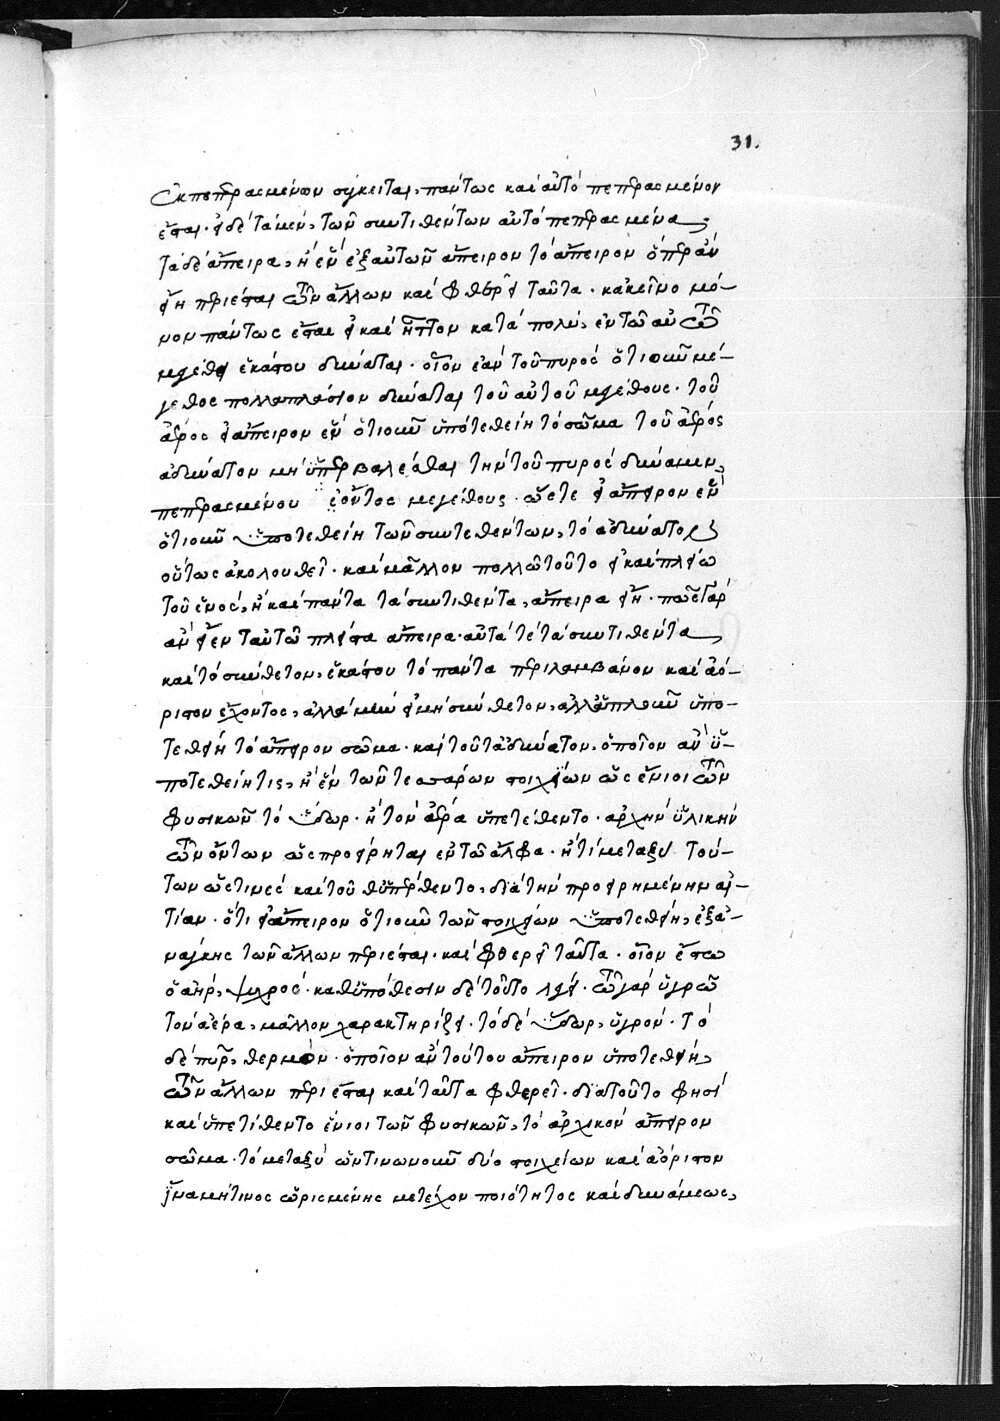 31.
ἐκ πεπερασμένων σύγκειται, πάντως καὶ αὐτὸ πεπερασμένον
ἔσται. εἰ δὲ τὰ μὲν, τῶν συντιθέντων αὐτὸ πεπερασμένα
τὰ δὲ ἄπειρα, ἢ ἓν ἐξ αὐτῶν ἄπειρον τὸ ἄπειρον ὅπερ ἂν
εἴη περιέσται τῶν ἄλλων καὶ φθερεῖ ταῦτα. κἀκεῖνο μό-
νον πάντως ἔσται εἰ καὶ ἧττον κατὰ πολὺ, ἐν τῶ αὐτῶ
μεγέθει ἑκάστου δύναται. οἷον ἐὰν τοῦ πυρὸς ὁτιοῦν μέ-
γεθος πολλαπλάσιον δύναται τοῦ αὐτοῦ μεγέθους. τοῦ
ἀέρος εἰ ἄπειρον ἓν ὁτιοῦν ὑποτεθείη τὸ σῶμα τοῦ ἀέρος
ἀδύνατον μὴ ὑπερβαλέσθαι τὴν τοῦ πυρὸς δύναμιν,
πεπερασμένου ὄντος μεγέθους. ὥστε εἰ ἄπειρον ἓν
ὁτιοῦν ὑποτεθείη τῶν συντεθέντων, τὸ ἀδύνατον
οὕτως ἀκολουθεῖ. καὶ μᾶλλον πολλῶ τοῦτο εἰ καὶ πλείω
τοῦ ἑνὸς, ἢ καὶ πάντα τὰ συντιθέντα, ἄπειρα εἴη. πῶς γὰρ
ἂν εἶεν ταυτῶ πλεῖστα ἄπειρα. αὐτά τε τὰ συντιθέντα
καὶ τὸ σύνθετον, ἑκάστου τὸ πάντα περιλαμβάνον καὶ ἀό-
ριστον ἔχοντος, ἀλλὰ μὴν εἰ μὴ σύνθετον, ἀλλ' ἁπλοῦν ὑπο-
τεθείη τὸ ἄπειρον σῶμα. καὶ τοῦτ' ἀδύνατον, ὁποῖον ἂν ὑ-
ποτεθείη τις, ἢ ἓν τῶν τεσσάρων στοιχείων ὡς ἔνιοι τῶν
φυσικῶν τὸ ὕδωρ. ἢ τὸν ἀέρα ὑπετίθεντο. ἀρχὴν ὑλικὴν
τῶν ὄντων ὡς προείρηται ἐν τῶ ἄλφα. ἤ τι μεταξὺ τού-
των ὥς τινες καὶ τοῦθ' ὑπερέθεντο, διὰ τὴν προειρημένην αἰ-
τίαν. ὅτι εἰ ἄπειρον ὁτιοῦν τῶν στοιχείων ὑποτεθείη, ἐξ ἀ-
νάγκης τῶν ἄλλων περιέσται. καὶ φθερεῖ ταῦτα. οἷον ἔστω
ὁ ἀὴρ, ψυχρός. καθ' ὑπόθεσιν δὲ τοῦτο λέγει. τῶ γὰρ ὑγρῶ
τὸν ἀέρα, μᾶλλον χαρακτηρίζει. τὸ δὲ ὕδωρ, ὑγρόν. τὸ
δὲ πῦρ, θερμὸν. ὁποῖον ἂν τούτου ἄπειρον ὑποτεθείη,
τῶν ἄλλων περιέσται καὶ ταῦτα φθερεῖ. διὰ τοῦτο φησὶ
καὶ ὑπετίθεντο ἔνιοι τῶν φυσικῶν, τὸ ἀρχικὸν ἄπειρον
σῶμα. τὸ μεταξὺ ὡντινωνοῦν δύο στοιχείων καὶ ἀόριστον
ἵνα μή τινος ὡρισμένης μετέχον ποιότητος καὶ δυνάμεως,